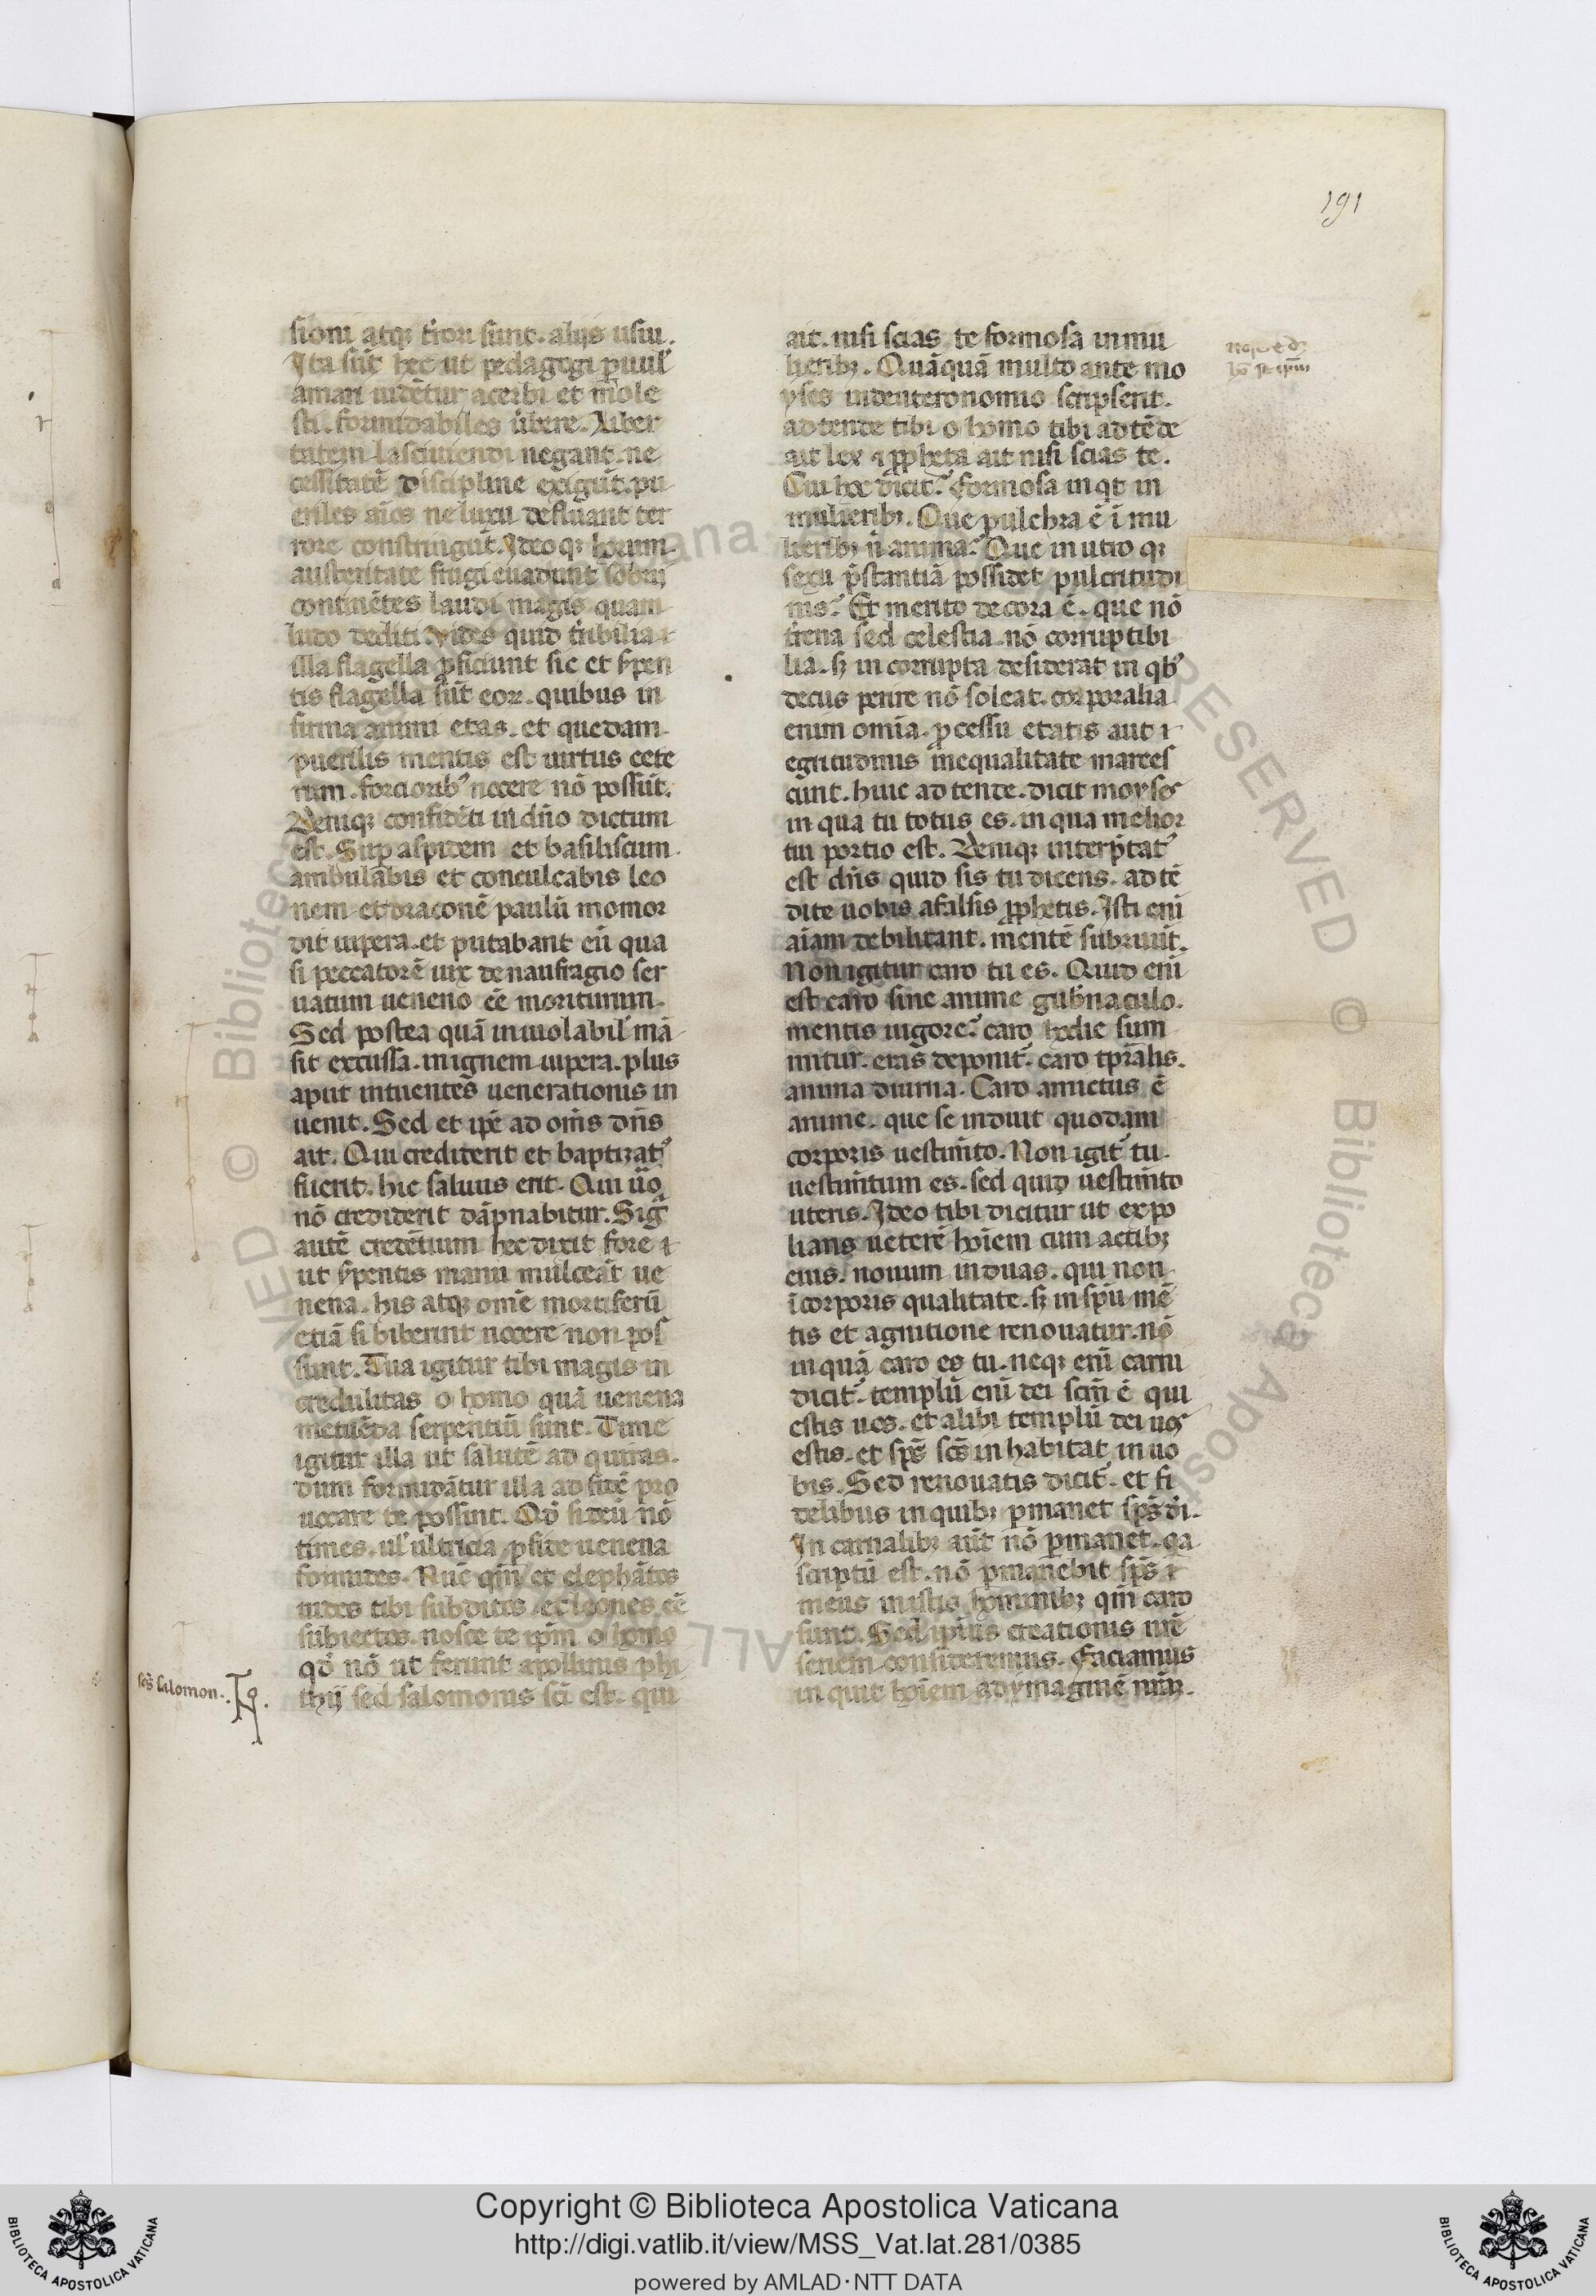 191
sioni atqꝫ t̓rori sunt. alijs usiu.
Ita sūt hec ut pedagogi ꝑuul᷒
amari uidētur acerbi et mole
sti. formidabiles uibere. Liber
tatem lasciuiendi negant. ne
cessitatē discipline exigūt. pu
eriles aīos ne luxu defluant ter
rore constringūt. Ideoqꝫ horum
austeritate frugi euadunt sobrij
continētes laudi magis quam
ludo dediti. Vides quid t̓ribilia ⁊
illa flagella ꝓficiunt sic et s̓pen
tis flagella sūt eoꝝ. quibus in
firma animi etas. et quedam
puerilis mentis est uirtus cete
rum. forciorib᷒ nocere nō possūt.
Deniqꝫ confidēti in dn̄o dictum
est. Suꝑ aspidem et basiliscum
ambulabis et conculcabis leo
nem et draconē paulū momor
dit uipera. et putabant eū qua
si peccatorē uix de naufragio ser
uatum ueneno eē moriturum.
Sed postea quā inuiolabil᷒ mā
sit excussa. in ignem uipera. plus
aput intuentes uenerationis in
uenit. Sed et ip̄e ad om̄s dn̄s
ait. Qui crediderit et baptizat᷒
fuerit. hic saluus erit. Qui u̓o
nō crediderit dāpnabitur. Sigᷓ
autē credētium hec dixit fore ⁊
ut s̓pentis manu mulceāt ue
nena. his atqꝫ om̄e mortiferū
etiā si biberint nocere non pos
sunt. Tua igitur tibi magis in
credulitas o homo quā uenena
metuēda serpentiū sunt. Time
igitur illa ut salutē ad quiras.
dum formidātur illa ad fidē pro
uocare te possint. Qđ si deū nō
times. ul᷒ ultricia ꝑfide uenena
formides. Nūc qm̄ et elephātos
uides tibi subditos et leones eē
subiectos. nosce te ip̄m o homo
qđ nō ut ferunt apollinis phi
thij sed salomonis sc̄i est. qui
sc̄s salomon.
ait. nisi scias te formosa in mu
lieribꝫ. Quāquā multo ante mo
yses in deuteronomio scripserit.
ad tende tibi o homo tibi ad tēde
ait lex ⁊ ꝓpheta ait nisi scias te.
Cui hoc dicit᷒ formosa inqt in
mulieribꝫ. Que pulchra ē ī mu
lieribꝫ n̄ anima᷒ Que in utroqꝫ
sexu p̄stantiā possidet pulcritudi
nis᷒ Et merito decora ē. que nō
t̓rena sed celestia. nō corruptibi
lia. sꝫ in corrupta desiderat in qb᷒
decus perire nō soleat. corporalia
enim omīa. ꝓcessu etatis aut ⁊
egritudinis inequalitate marces
cunt. huic ad tende. dicit moyses
in qua tu totus es. in qua melior
tui portio est. Deniqꝫ interp̄tat᷒
est dn̄s quid sis tu dicens. ad tē
dite uobis a falsis ꝓphetis. Isti enī
aīam debilitant. mentē subruūt.
Non igitur caro tu es. Quid enī
est caro sine anime gub̓naculo.
mentis uigore᷒ caro hodie sum
mitur. cras deponit᷒ caro tp̄ralis.
anima diurna. Caro amictus ē
anime. que se induit quodam
corporis uestim̄to. Non igit᷒ tu
uestim̄tum es. sed quid uestim̄to
uteris. Ideo tibi dicitur ut expo
lians ueterē hoīem cum actibꝫ
eius. nouum induas. qui non
ī corporis qualitate. sꝫ in sp̄u mē
tis et agnitione renouatur. nō
inquā caro es tu. neqꝫ enī carni
dicit᷒ templū enī dei sc̄m ē qui
estis uos. et alibi templū dei uos
estis. et sp̄s sc̄s in habitat in uo
bis. Sed renouatis dicit᷒ et fi
delibus in quibꝫ ꝑmanet sp̄s di̓.
In carnalibꝫ aūt nō ꝑmanet. qa
scriptū est. nō ꝑmanebit sp̄s ⁊
meus in istis hominibꝫ qm̄ caro
sunt. Sed ipius creationis n̄re
seriem consideremus. Faciamus
inquit hoīem ad ymaginē nr̄aꝫ.
Copyright © Biblioteca Apostolica Vaticana
http://digi.vatlib.it/view/MSS_Vat.lat.281/0385
powered by AMLAD·NTT DATA
BIBLIOTECA APOSTOLICA VATICANA
BIBLIOTECA APOSTOLICA VATICANA